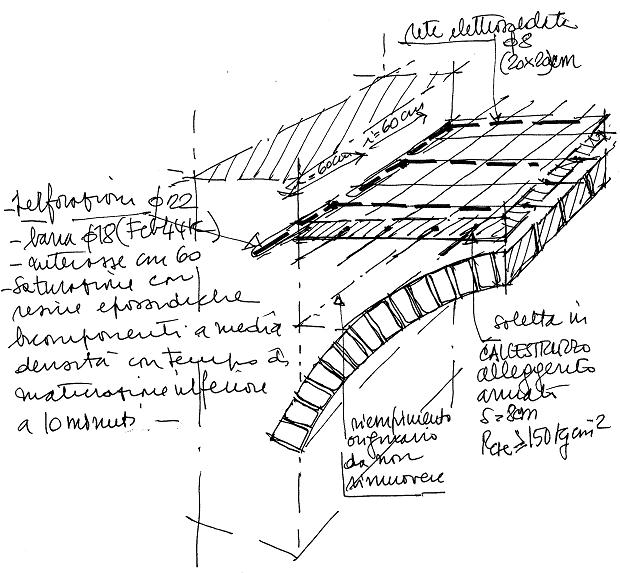 rete elettrosaldata
ϕ8
(20x20)cm
i=60cm
i=60cm
- Perforazioni ϕ22
- barra ϕ18 (FeB44K)
- interasse cm 60
- Saturazione con
resine epossidiche
bicomponenti a media
densità con tempo di
maturazione inferiore
a 10 minuti —
soletta in
CALCESTRUZZO
alleggerito
armata
S=8cm
Rck ≥ 150 Kg cm²
riempimento
originario
da non
rimuovere